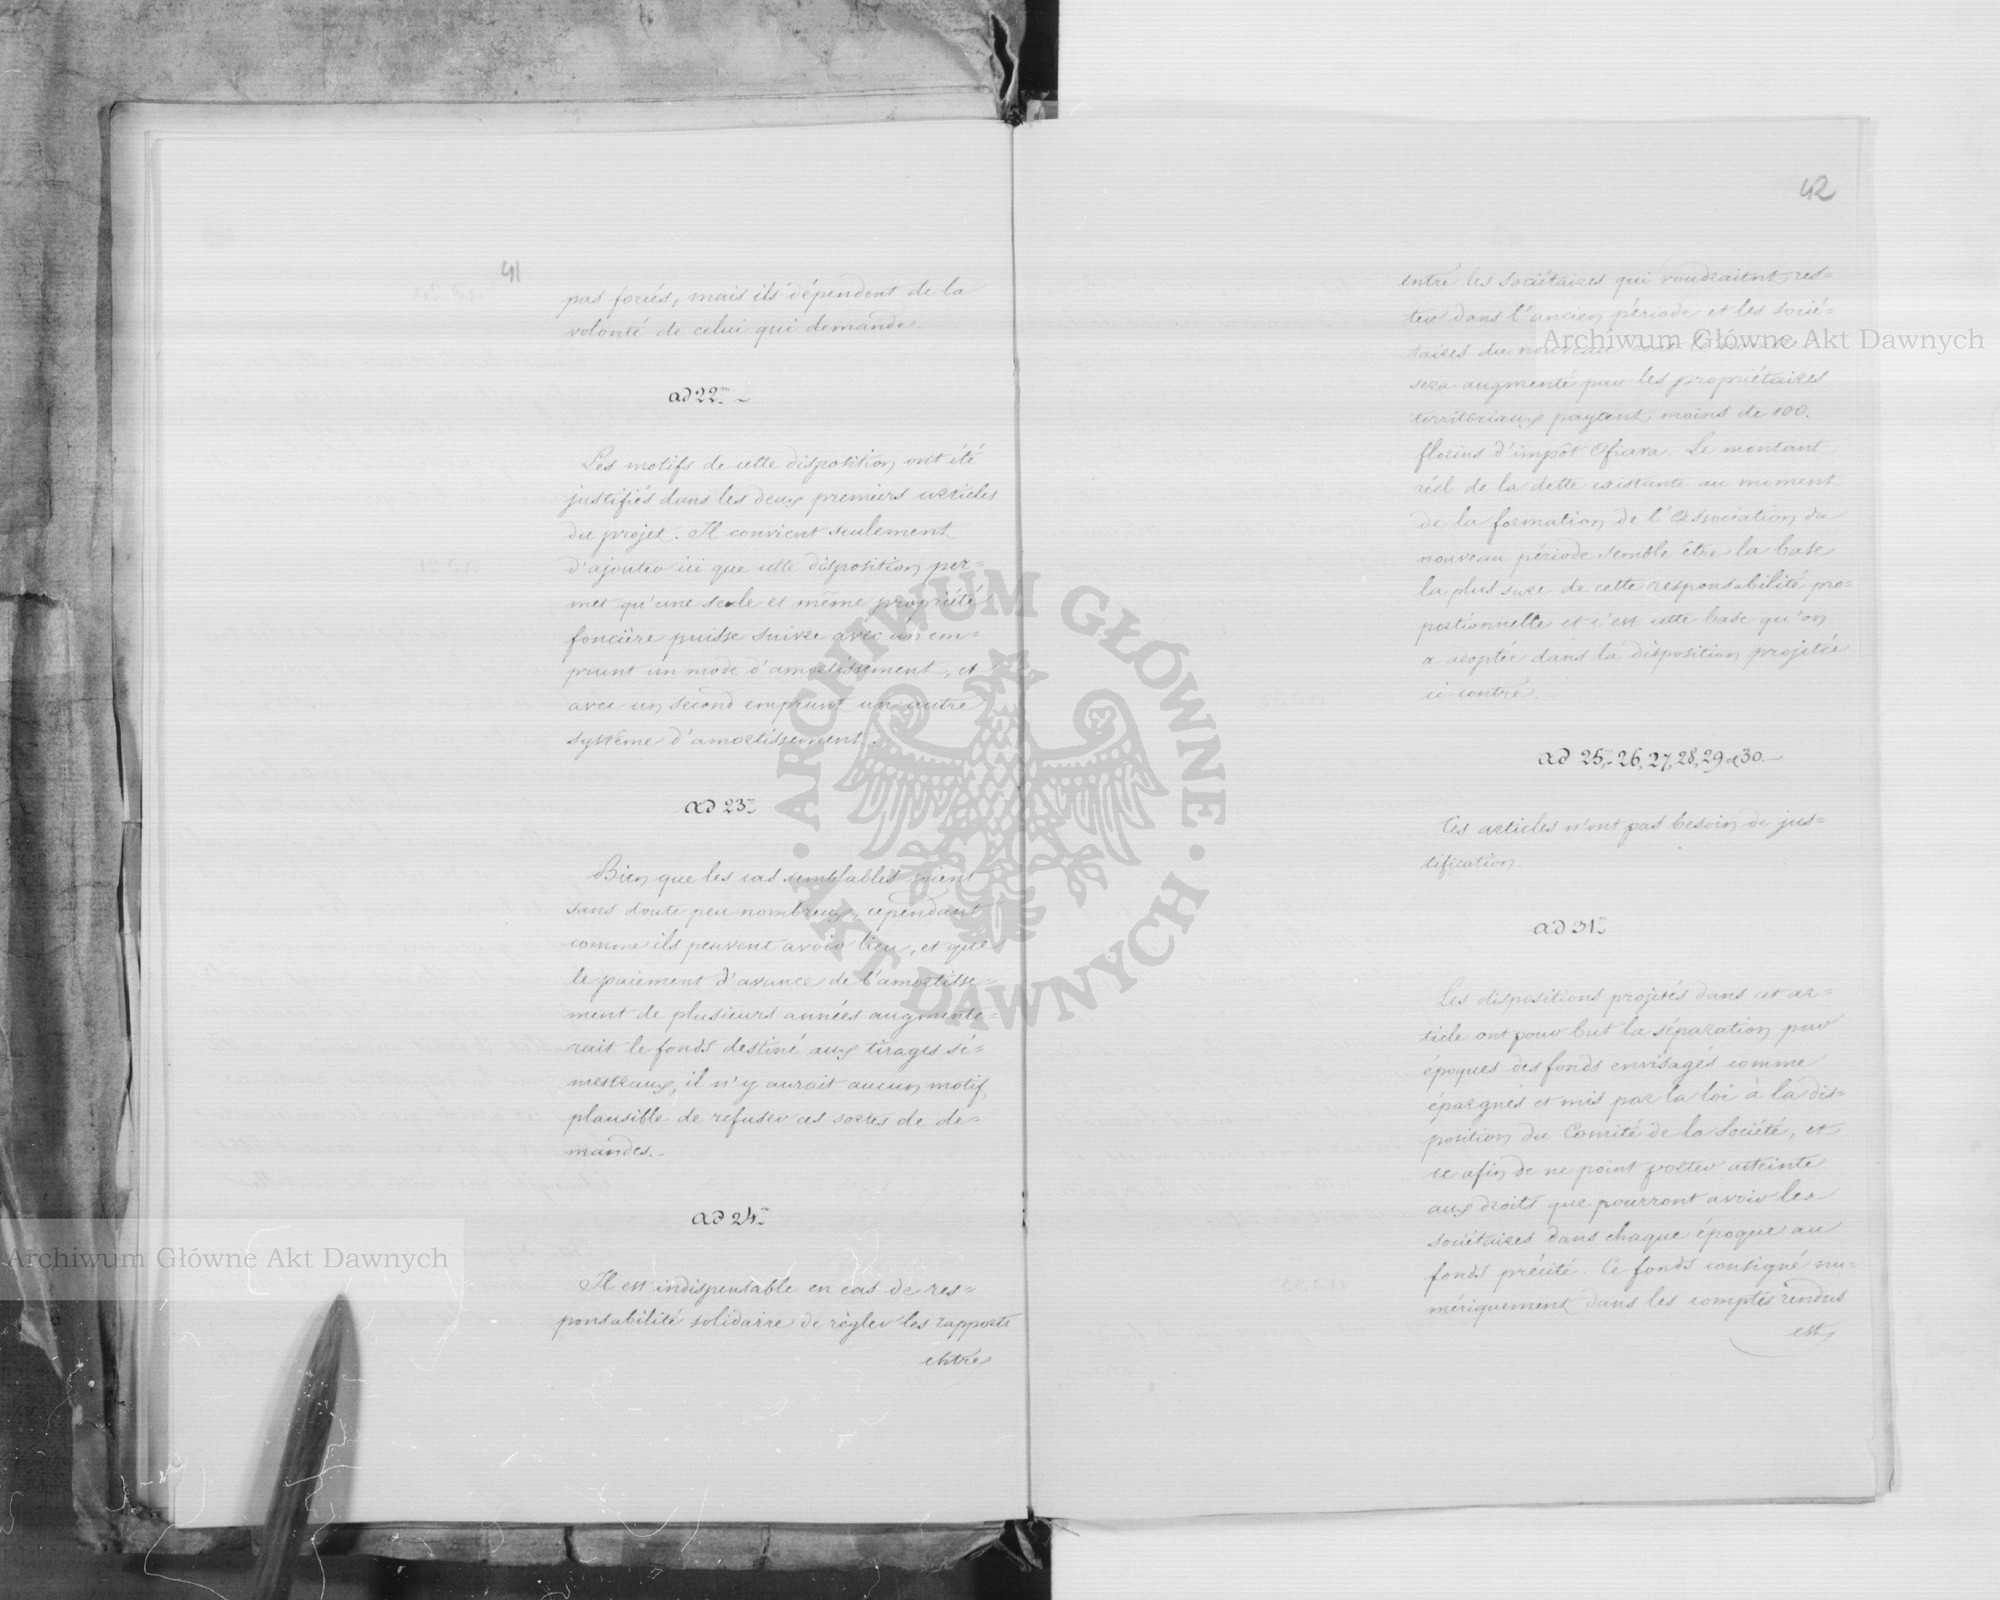 41
pas forcés, mais ils dépendent de la
volonté de celui qui demande.
ad 22.
Les motifs de cette disposition ont été
justifiés dans les deux premiers articles
du projet. Il convient seulement
d'ajouter ici que cette disposition per=
met qu'une seule et même propriété
foncière puisse suivre avec un em=
prunt un mode d'amortissement, et
avec un second emprunt un autre
système d'amortissement.
ad 23
Bien que les cas semblables soient
sans doute peu nombreux, cependant
comme ils peuvent avoir lieu, et que
le paiement d'avance de l'amortisse=
ment de plusieurs années augmente=
rait le fonds destiné aux tirages sé=
mestraux, il n'y aurait aucun motif
plausible de refuser ces sortes de de=
mandes.
ad 24
Il est indispensable en cas de res=
ponsabilité solidaire de règler les rapports
entre
42
entre les sociétaires qui voudraient res=
ter dans l'ancien période et les socié=
taires du nouveau
sera augmenté par les propriétaires
territoriaux payant moins de 100.
florins d'impôt Ofiara. Le montant
réel de la dette existante au moment
de la formation de l'Association du
nouveau période semble être la base
la plus sure de cette responsabilité pro=
portionnelle et c'est cette base qu'on
a adoptée dans la disposition projetée
ci contre.
ad 25, 26, 27, 28, 29 et 30.
Ces articles n'ont pas besoin de jus=
tification.
ad 31
Les dispositions projetés dans cet ar=
ticle ont pour but la séparation par
époques des fonds envisagés comme
épargnés et mis par la loi à la dis=
position du Comité de la Société, et
ce afin de ne point porter atteinte
aux droits que pourront avoir les
sociétaires dans chaque époque au
fonds précité. Ce fonds consigné nu=
mériquement dans les comptes rendus
est
Archiwum Główne Akt Dawnych
Archiwum Główne Akt Dawnych
ARCHIWUM GŁÓWNE · AKT DAWNYCH ·